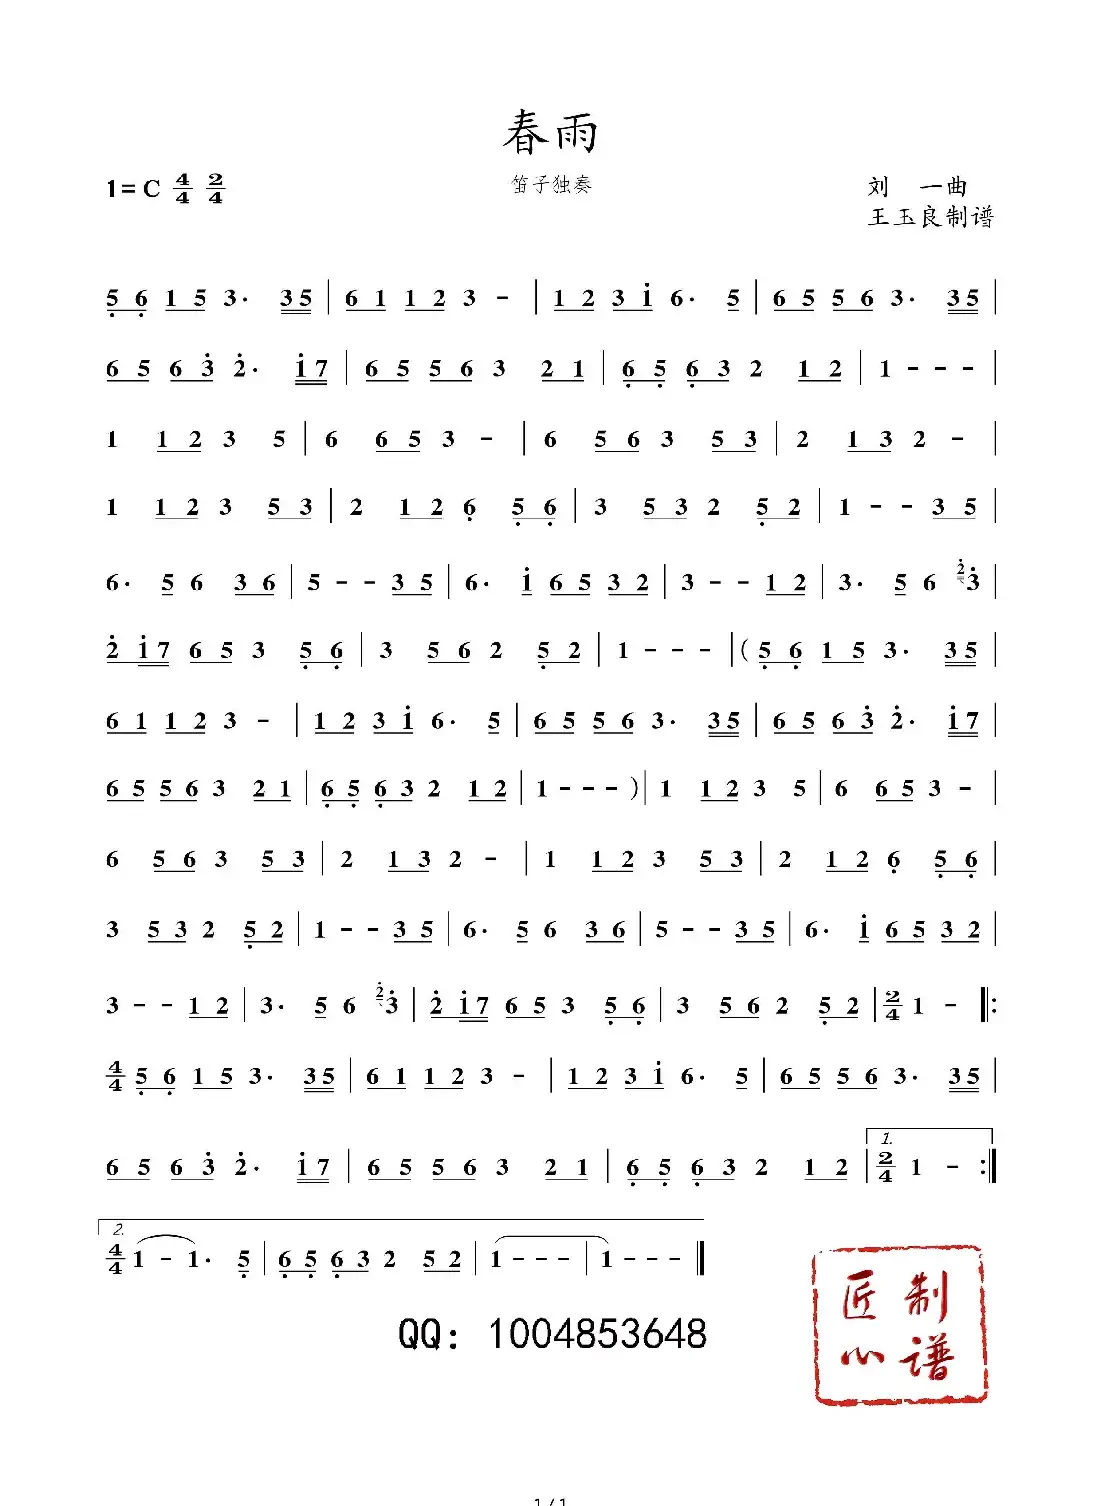 春雨
1=C 4/4 2/4 笛子独奏 刘 一曲
王玉良制谱
5 6 1 5 3· 3 5 | 6 1 1 2 3 - | 1 2 3 1 6· 5 | 6 5 5 6 3· 3 5 |
6 5 6 3 2· 1 7 | 6 5 5 6 3 2 1 | 6 5 6 3 2 1 2 | 1 - - - |
1 1 2 3 5 | 6 6 5 3 - | 6 5 6 3 5 3 | 2 1 3 2 - |
1 1 2 3 5 3 | 2 1 2 6 5 6 | 3 5 3 2 5 2 | 1 - - 3 5 |
6· 5 6 3 6 | 5 - - 3 5 | 6· 1 6 5 3 2 | 3 - - 1 2 | 3· 5 6 2 3 |
2 1 7 6 5 3 5 6 | 3 5 6 2 5 2 | 1 - - - | ( 5 6 1 5 3· 3 5 |
6 1 1 2 3 - | 1 2 3 1 6· 5 | 6 5 5 6 3· 3 5 | 6 5 6 3 2· 1 7 |
6 5 5 6 3 2 1 | 6 5 6 3 2 1 2 | 1 - - - ) | 1 1 2 3 5 | 6 6 5 3 - |
6 5 6 3 5 3 | 2 1 3 2 - | 1 1 2 3 5 3 | 2 1 2 6 5 6 |
3 5 3 2 5 2 | 1 - - 3 5 | 6· 5 6 3 6 | 5 - - 3 5 | 6· 1 6 5 3 2 |
3 - - 1 2 | 3· 5 6 2 3 | 2 1 7 6 5 3 5 6 | 3 5 6 2 5 2 | 2/4 1 - ‖:
4/4 5 6 1 5 3· 3 5 | 6 1 1 2 3 - | 1 2 3 1 6· 5 | 6 5 5 6 3· 3 5 |
1.
6 5 6 3 2· 1 7 | 6 5 5 6 3 2 1 | 6 5 6 3 2 1 2 | 2/4 1 - :‖
2.
4/4 1 - 1· 5 | 6 5 6 3 2 5 2 | 1 - - - | 1 - - - ‖
匠制
心谱
QQ: 1004853648
1 / 1